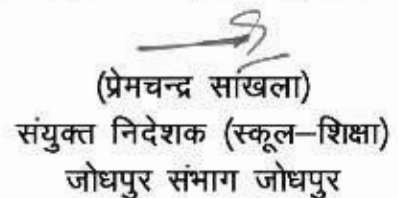 (प्रेमचन्द्र सांखला)
संयुक्त निदेशक (स्कूल–शिक्षा)
जोधपुर संभाग जोधपुर